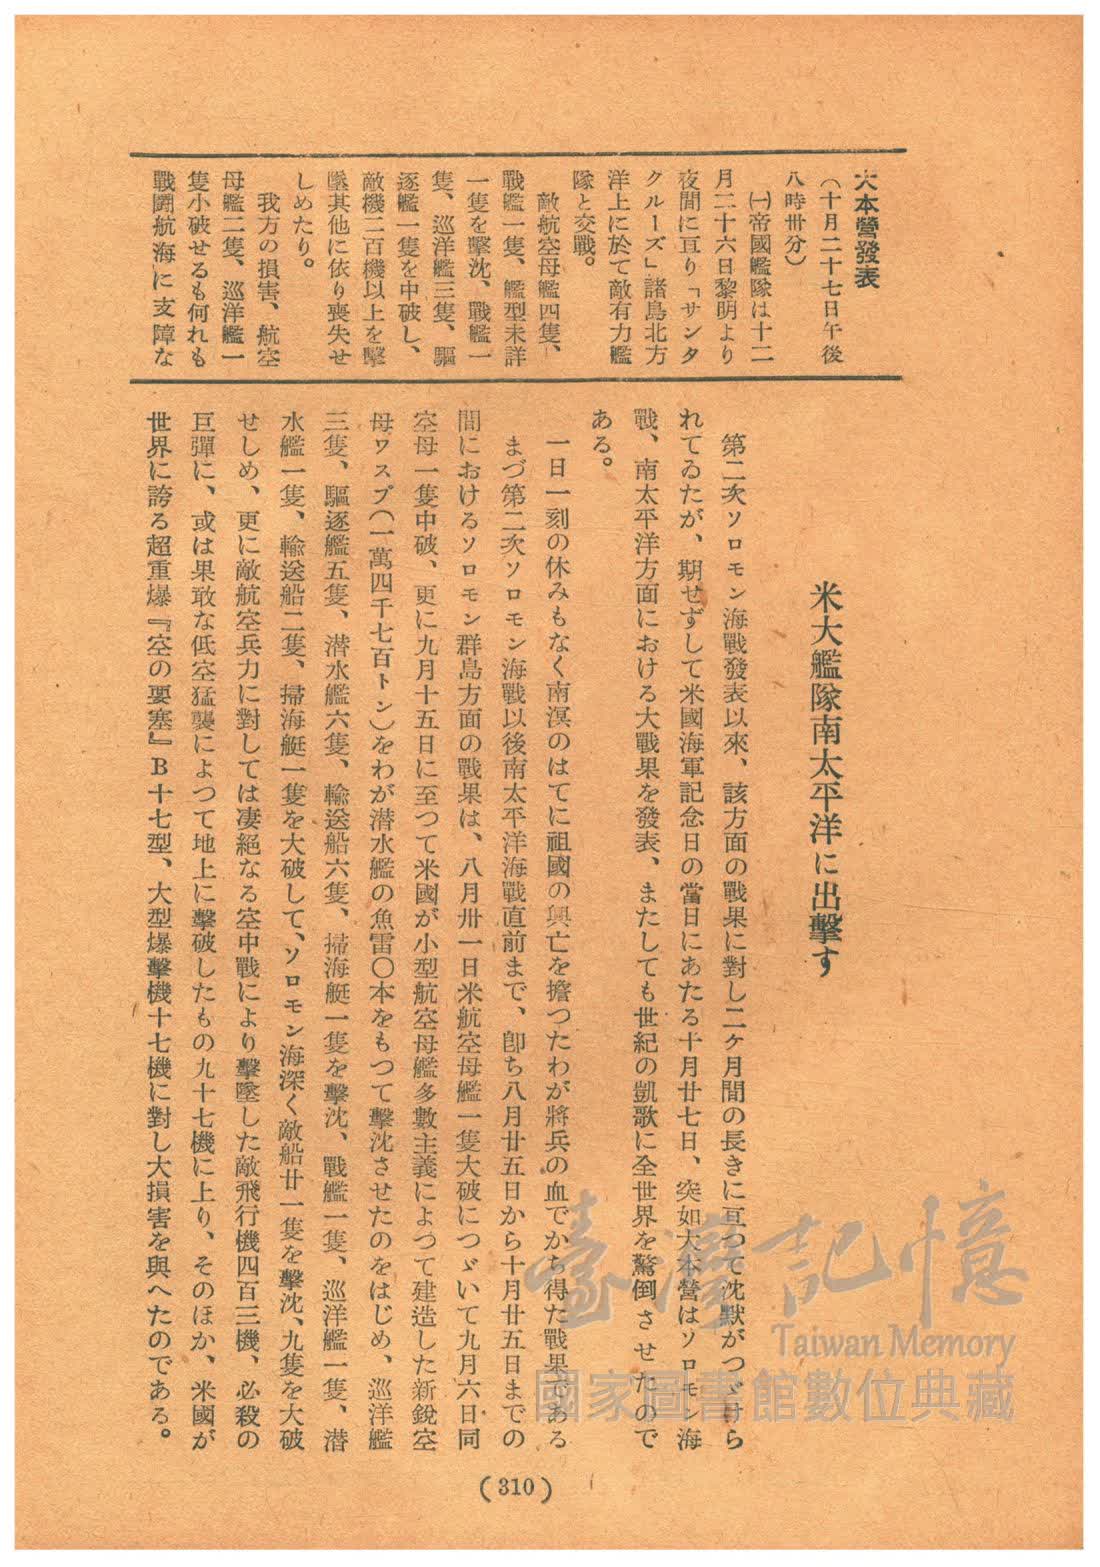 大本營發表
(十月二十七日午後
八時卅分)
㈠帝國艦隊は十二
月二十六日黎明より
夜間に亘り「サンタ
クルーズ」諸島北方
洋上に於て敵有力艦
隊と交戰。
敵航空母艦四隻、
戰艦一隻、艦型未詳
一隻を擊沈、戰艦一
隻、巡洋艦三隻、驅
逐艦一隻を中破し、
敵機二百機以上を擊
墜其他に依り喪失せ
しめたり。
我方の損害、航空
母艦二隻、巡洋艦一
隻小破せるも何れも
戰鬪航海に支障な
米大艦隊南太平洋に出擊す
第二次ソロモン海戰發表以來、該方面の戰果に對し二ケ月間の長きに亘つて沈默がつゞけら
れてゐたが、期せずして米國海軍記念日の當日にあたる十月廿七日、突如大本營はソロモン海
戰、南太平洋方面における大戰果を發表、またしても世紀の凱歌に全世界を驚倒させたので
ある。
一日一刻の休みもなく南溟のはてに祖國の興亡を擔つたわが將兵の血でかち得た戰果である
まづ第二次ソロモン海戰以後南太平洋海戰直前まで、卽ち八月廿五日から十月廿五日までの
間におけるソロモン群島方面の戰果は、八月卅一日米航空母艦一隻大破につゞいて九月六日同
空母一隻中破、更に九月十五日に至つて米國が小型航空母艦多數主義によつて建造した新銳空
母ワスプ(一萬四千七百トン)をわが潜水艦の魚雷〇本をもつて擊沈させたのをはじめ、巡洋艦
三隻、驅逐艦五隻、潜水艦六隻、輸送船六隻、掃海艇一隻を擊沈、戰艦一隻、巡洋艦一隻、潜
水艦一隻、輸送船二隻、掃海艇一隻を大破して、ソロモン海深く敵船廿一隻を擊沈、九隻を大破
せしめ、更に敵航空兵力に對しては凄絕なる空中戰により擊墜した敵飛行機四百三機、必殺の
巨彈に、或は果敢な低空猛襲によつて地上に擊破したもの九十七機に上り、そのほか、米國が
世界に誇る超重爆『空の要塞』B十七型、大型爆擊機十七機に對し大損害を與へたのである。
(310)
臺灣記憶
Taiwan Memory
國家圖書館數位典藏